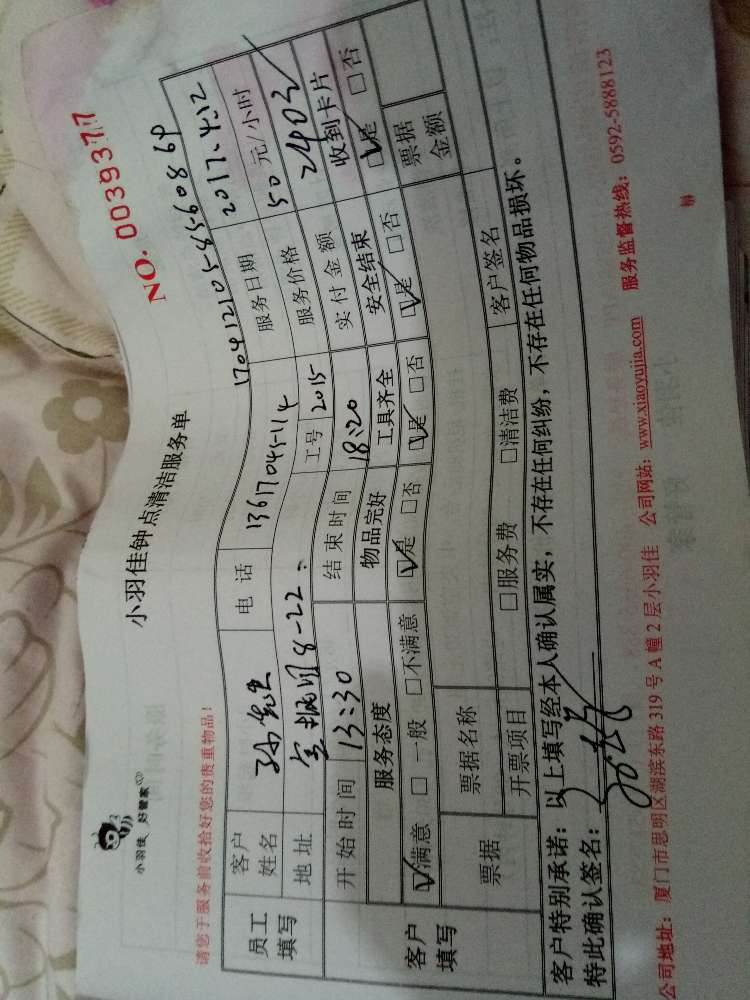 小羽佳 好管家
小羽佳钟点清洁服务单
NO. 0039377
请您于服务前收拾好您的贵重物品!
员工填写 客户姓名 孙先生 电话 13617045114 服务日期 2017.4.12
地址 8-22 工号 2015 服务价格 50 元/小时
开始时间 13:30 结束时间 18:20 实付金额 240元
客户填写 服务态度 物品完好 工具齐全 安全结束 收到卡片
☑满意 □一般 □不满意 ☑是 □否 ☑是 □否 ☑是 □否 ☑是 □否
票据 票据名称 票据金额
开票项目 □服务费 □清洁费 客户签名
客户特别承诺:以上填写经本人确认属实,不存在任何纠纷,不存在任何物品损坏。
特此确认签名:
公司地址:厦门市思明区湖滨东路319号A幢2层小羽佳 公司网站:www.xiaoyujia.com 服务监督热线:0592-5888123